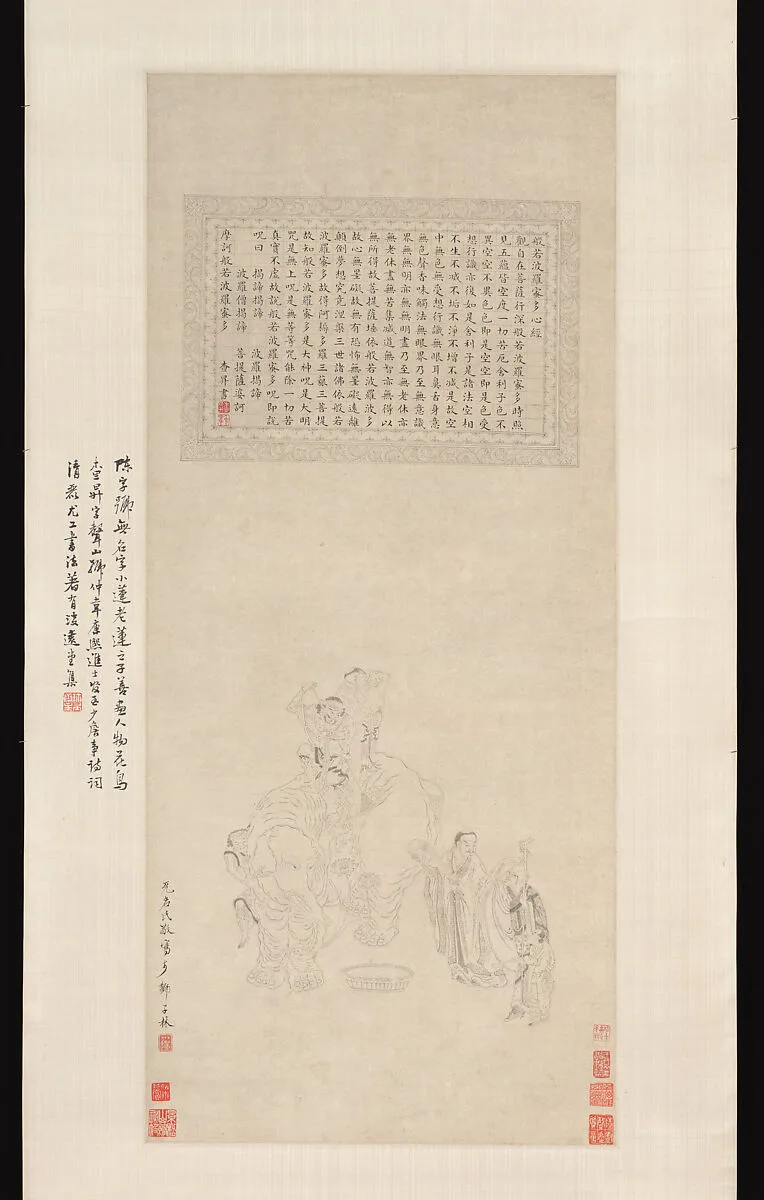 般若波羅蜜多心經
觀自在菩薩行深般若波羅蜜多時照
見五蘊皆空度一切苦厄舍利子色不
異空空不異色色即是空空即是色受
想行識亦復如是舍利子是諸法空相
不生不滅不垢不淨不增不減是故空
中無色無受想行識無眼耳鼻舌身意
無色聲香味觸法無眼界乃至無意識
界無無明亦無無明盡乃至無老死亦
無老死盡無苦集滅道無智亦無得以
無所得故菩提薩埵依般若波羅蜜多
故心無罣礙無罣礙故無有恐怖遠離
顛倒夢想究竟涅槃三世諸佛依般若
波羅蜜多故得阿耨多羅三藐三菩提
故知般若波羅蜜多是大神咒是大明
咒是無上咒是無等等咒能除一切苦
真實不虛故說般若波羅蜜多咒即說
咒曰 揭諦揭諦 波羅揭諦
波羅僧揭諦 菩提薩婆訶
摩訶般若波羅蜜多 查昇書
陳字號無名字小蓮老蓮之子善畫人物花鳥
查昇字聲山號仲韋康熙進士官至少詹事詩詞
清麗尤工書法著有澹遠堂集
無名氏敬寫於獅子林